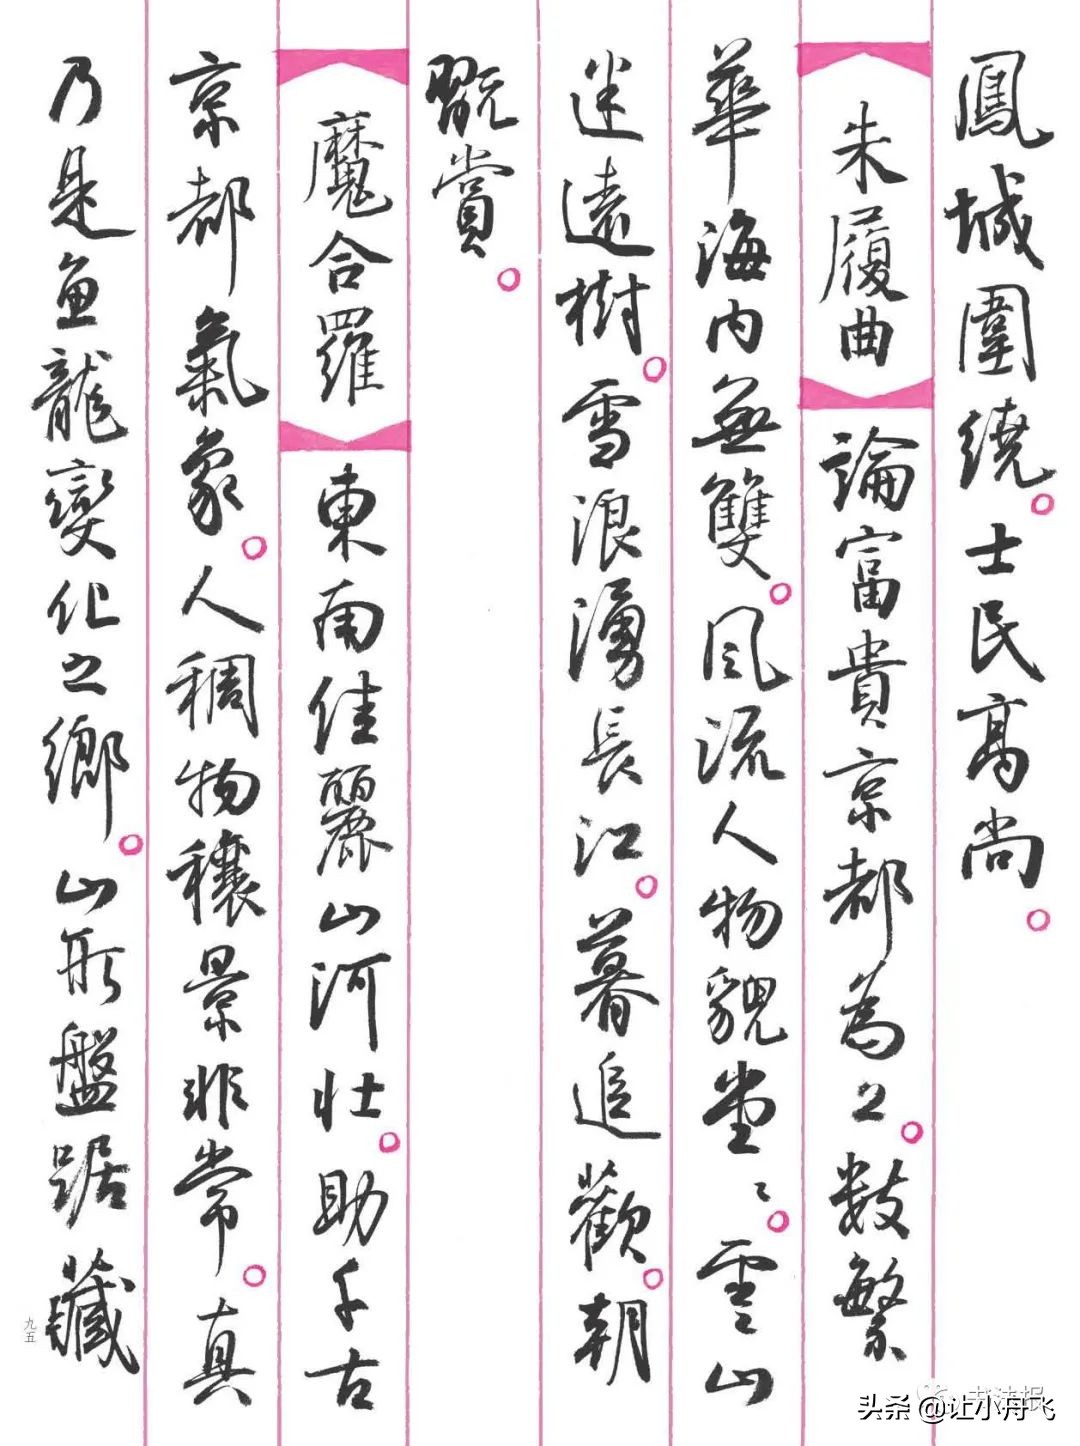 鳳城圍繞。士民高尚。
朱履曲
論富貴京都為上。數繁
華海内無雙。風流人物貌堂〻。雲山
迷遠樹。雪浪湧長江。暮追歡。朝
翫賞。
魔合羅
東南佳麗山河壯。助千古
京都氣象。人稠物穰景非常。真
乃是魚龍變化之鄉。山形盤踞藏
九五
书法报
头条 @让小舟飞